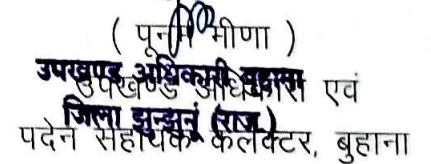 ( पूनम मीणा )
उपखण्ड अधिकारी बुहाना
उपखण्ड अधिकारी एवं
जिला झुन्झुनूं (राज.)
पदेन सहायक कलेक्टर, बुहाना